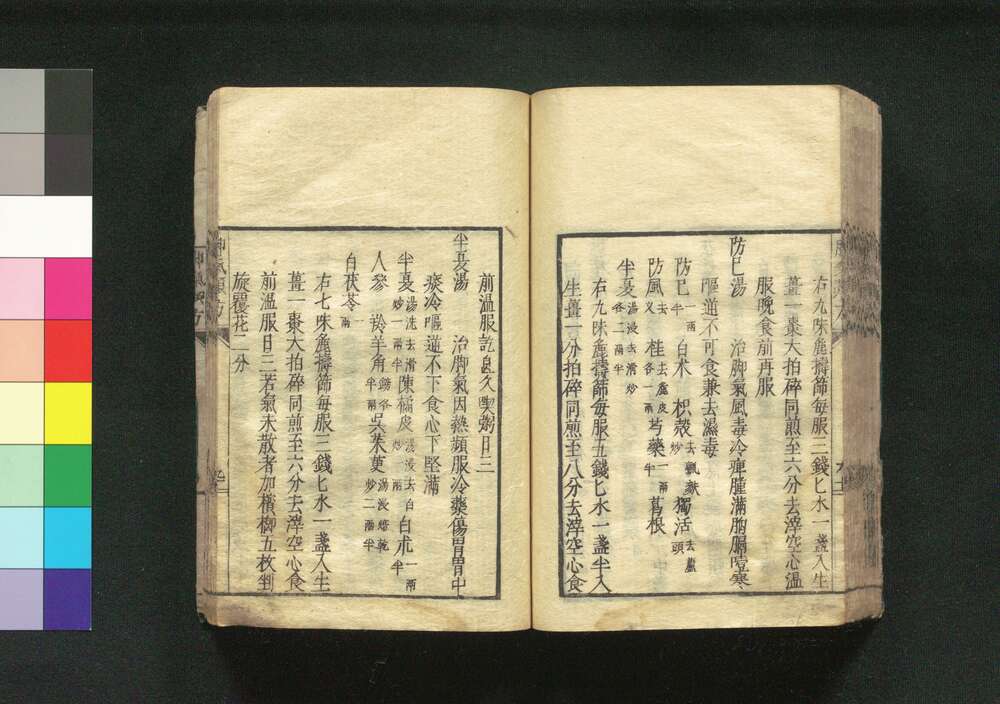 右九味麄擣篩每服三錢匕水一盞入生
薑一棗大拍碎同煎至六分去滓空心温
服晚食前再服
防巳湯 治脚氣風毒冷痺腫滿胸膈壅寒
嘔逆不可食兼去濕毒
防巳一兩半 白术 枳殼去瓤麩炒 獨活去蘆頭
防風去叉 桂去麄皮各一兩 芍藥一兩半 葛根
半夏湯浸去滑炒各二兩半
右九味麄擣篩每服五錢匕水一盞半入
生薑一分拍碎同煎至八分去滓空心食
前温服訖良久喫粥日三
半夏湯 治脚氣因熱頻服冷藥傷胃胃中
痰冷嘔逆不下食心下堅滿
半夏湯洗去滑炒一兩半 陳橘皮湯浸去白炒一兩 白朮一兩半
人參 羚羊角鎊各一兩半 吳茱萸湯浸焙乾炒二兩半
白茯苓一兩
右七味麄擣篩每服三錢匕水一盞入生
薑一棗大拍碎同煎至六分去滓空心食
前温服日三若氣未散者加檳榔五枚剉
旋覆花二分